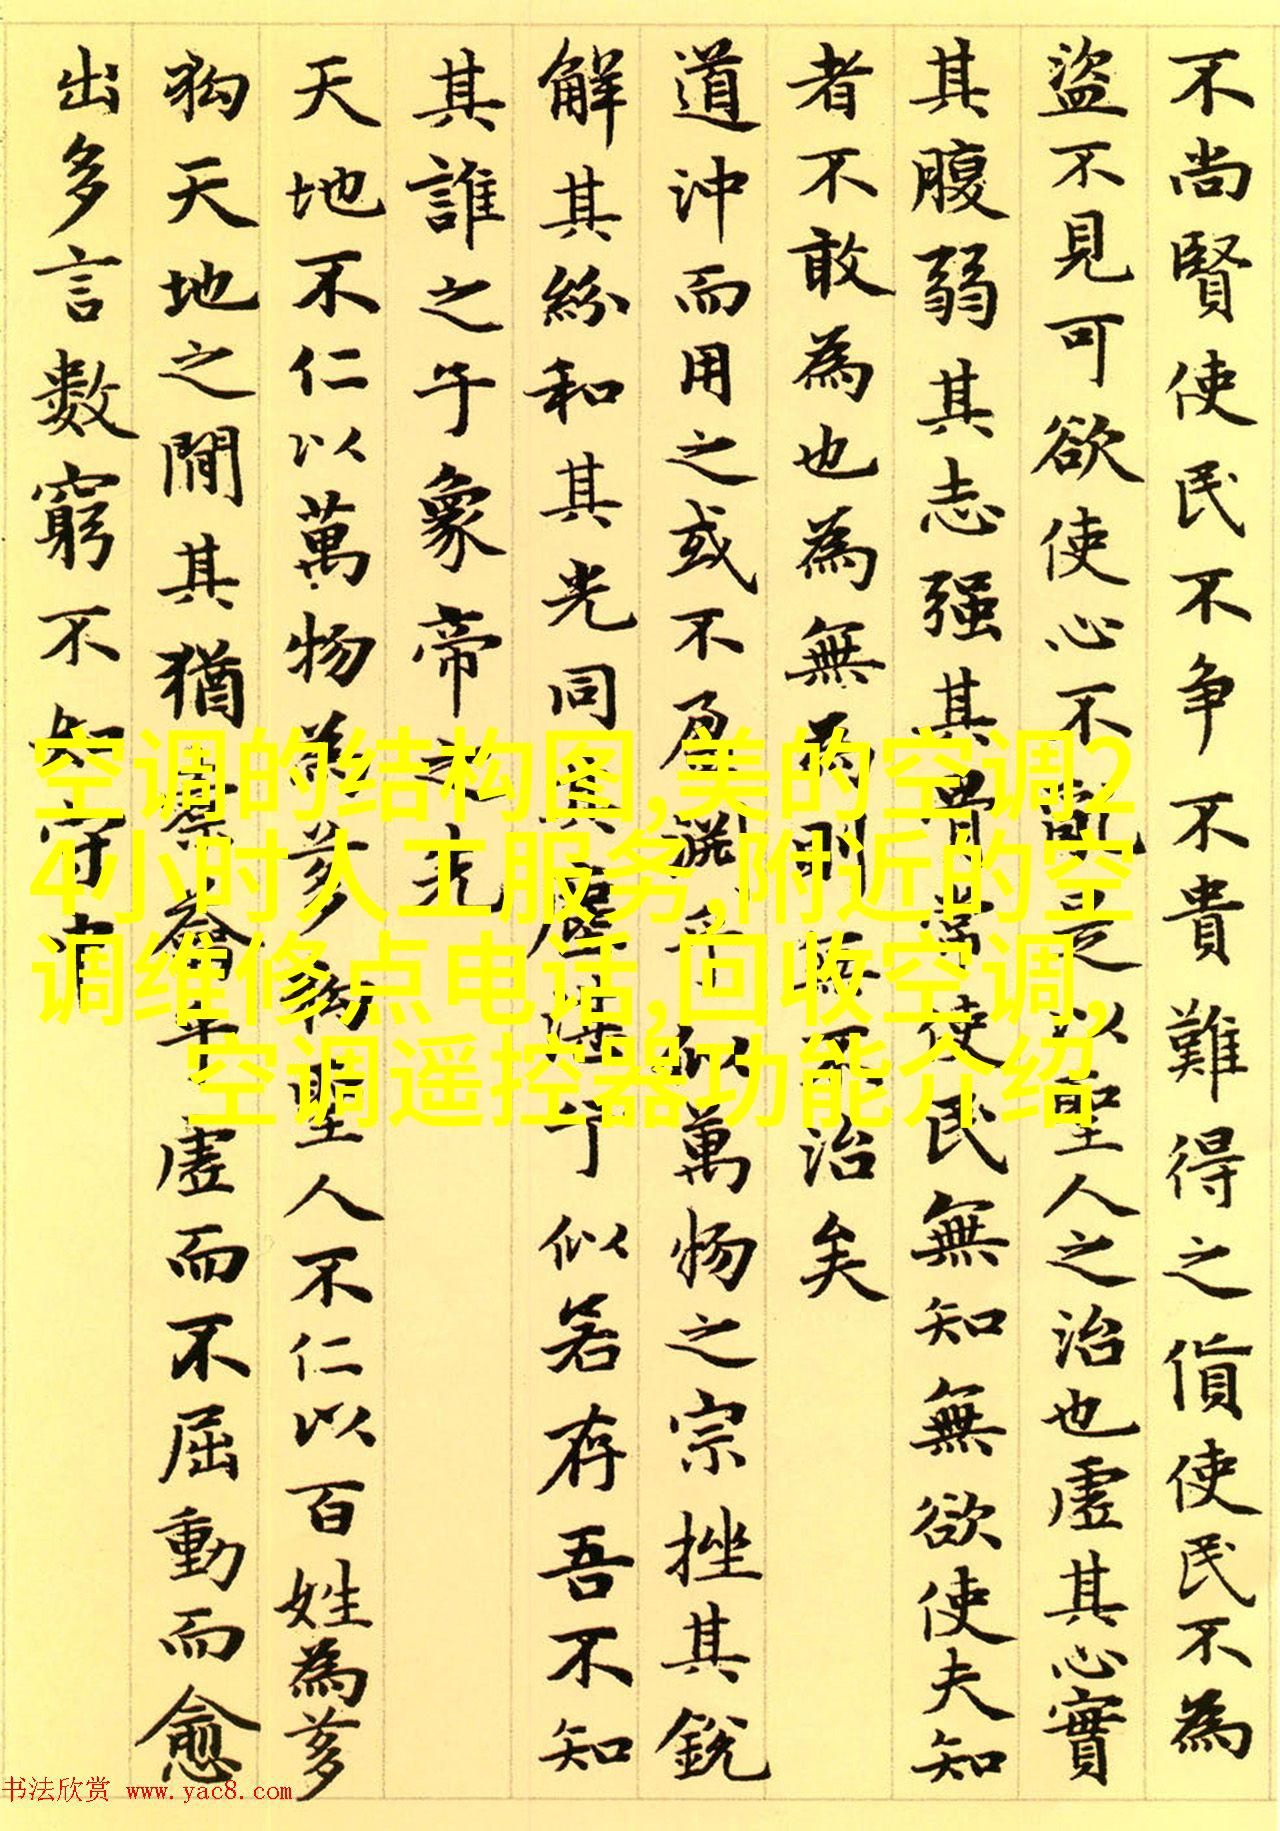 不尚賢使民不争不貴難得之貨使民不為
盜不見可欲使心不亂是以聖人之治也虛其心實
其腹弱其志强其骨常使民無知無欲使夫知
者不敢為也為無為則無不治矣
道沖而用之或不盈淵乎似萬物之宗挫其銳
解其紛和其光同其塵湛乎似若存吾不知
其誰之子象帝之先
天地不仁以萬物為芻狗聖人不仁以百姓為芻
狗天地之間其猶橐籥乎虛而不屈動而愈
出多言數窮不知守中
空调的结构图,美的空调2
4小时人工服务,附近的空
调维修点电话,回收空调,
空调遥控器功能介绍
书法欣赏 www.yac8.com